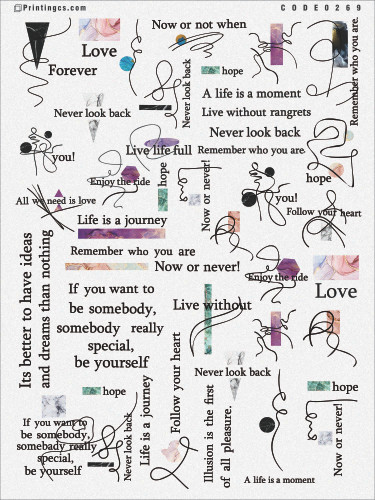 Printingcs.com
CODE0269
Now or not when
Love
Forever
Never look back
hope
Remember who you are.
A life is a moment
Never look back
Live without rangrets
Never look back
you!
Live life full
Remember who you are.
Enjoy the ride
hope
Now or never!
hope
All we need is love
you!
Follow your heart
Life is a journey
Remember who you are
Now or never!
Enjoy the ride
Its better to have ideas
and dreams than nothing
If you want to
be somebody,
somebody really
special,
be yourself
Live without
Love
Never look back
hope
Life is a journey
Follow your heart
Illusion is the first
of all pleasure.
hope
If you want to
be somebody,
somebody really
special,
be yourself
Never look back
Now or never!
A life is a moment